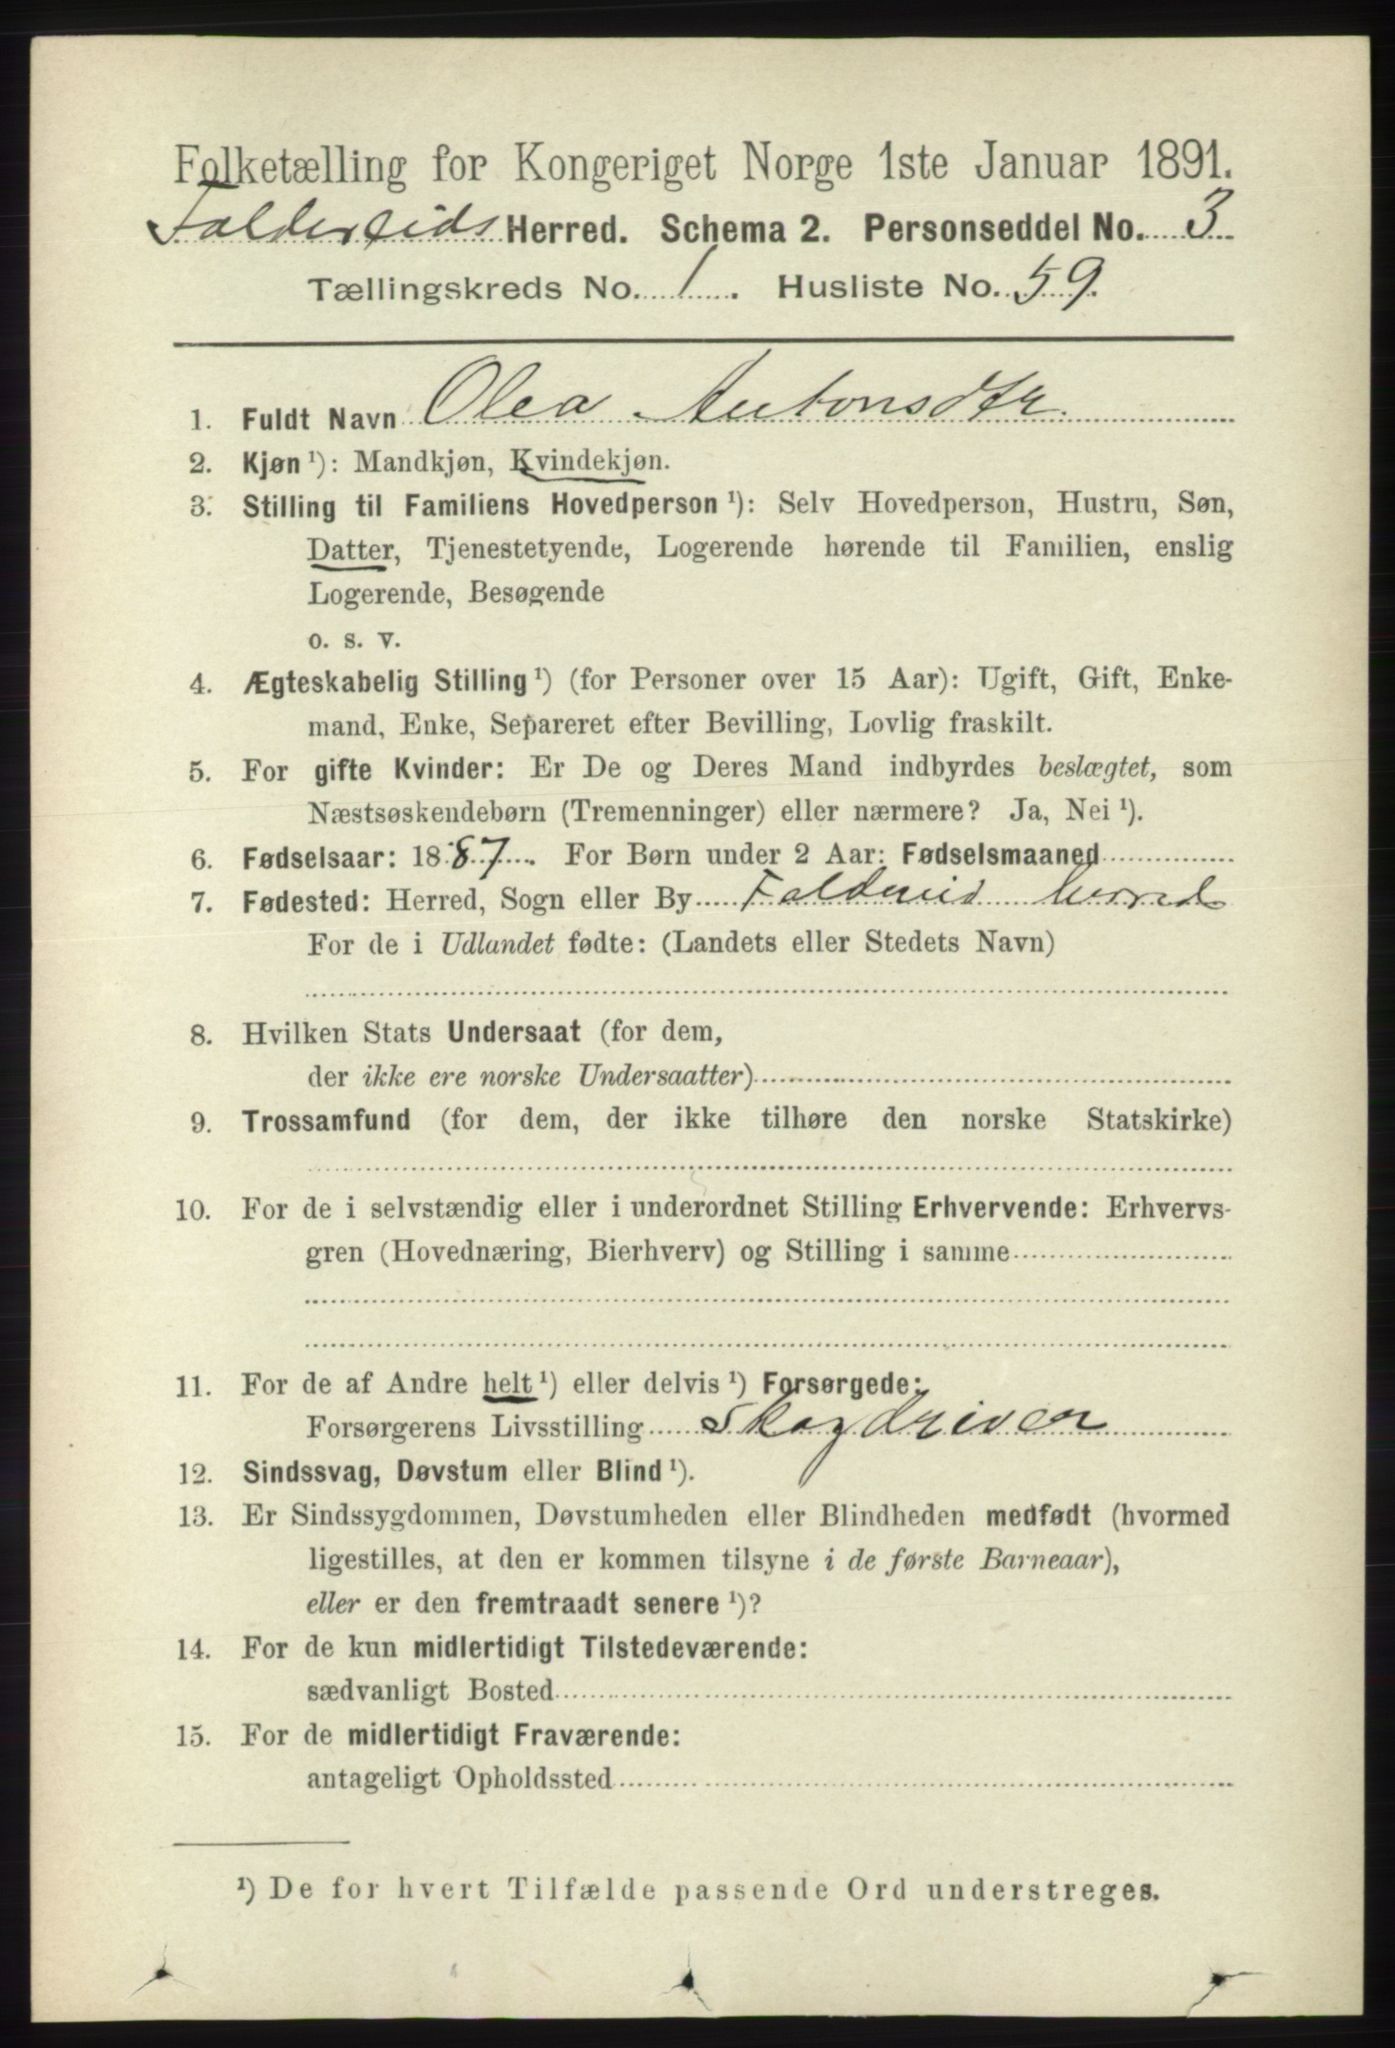 Folketælling for Kongeriget Norge 1ste Januar 1891.
Foldereids Herred. Schema 2. Personseddel No. 3
Tællingskreds No. 1. Husliste No. 59.
1. Fuldt Navn Olea Antonsdtr.
2. Kjøn ¹): Mandkjøn, Kvindekjøn.
3. Stilling til Familiens Hovedperson ¹): Selv Hovedperson, Hustru, Søn,
Datter, Tjenestetyende, Logerende hørende til Familien, enslig
Logerende, Besøgende
o. s. v.
4. Ægteskabelig Stilling ¹) (for Personer over 15 Aar): Ugift, Gift, Enke-
mand, Enke, Separeret efter Bevilling, Lovlig fraskilt.
5. For gifte Kvinder: Er De og Deres Mand indbyrdes beslægtet, som
Næstsøskendebørn (Tremenninger) eller nærmere? Ja, Nei ¹).
6. Fødselsaar: 1887. For Børn under 2 Aar: Fødselsmaaned
7. Fødested: Herred, Sogn eller By Foldereid herred
For de i Udlandet fødte: (Landets eller Stedets Navn)
8. Hvilken Stats Undersaat (for dem,
der ikke ere norske Undersaatter)
9. Trossamfund (for dem, der ikke tilhøre den norske Statskirke)
10. For de i selvstændig eller i underordnet Stilling Erhvervende: Erhvervs-
gren (Hovednæring, Bierhverv) og Stilling i samme
11. For de af Andre helt ¹) eller delvis ¹) Forsørgede:
Forsørgerens Livsstilling Skogdriver
12. Sindssvag, Døvstum eller Blind ¹).
13. Er Sindssygdommen, Døvstumheden eller Blindheden medfødt (hvormed
ligestilles, at den er kommen tilsyne i de første Barneaar),
eller er den fremtraadt senere ¹)?
14. For de kun midlertidigt Tilstedeværende:
sædvanligt Bosted
15. For de midlertidigt Fraværende:
antageligt Opholdssted
¹) De for hvert Tilfælde passende Ord understreges.